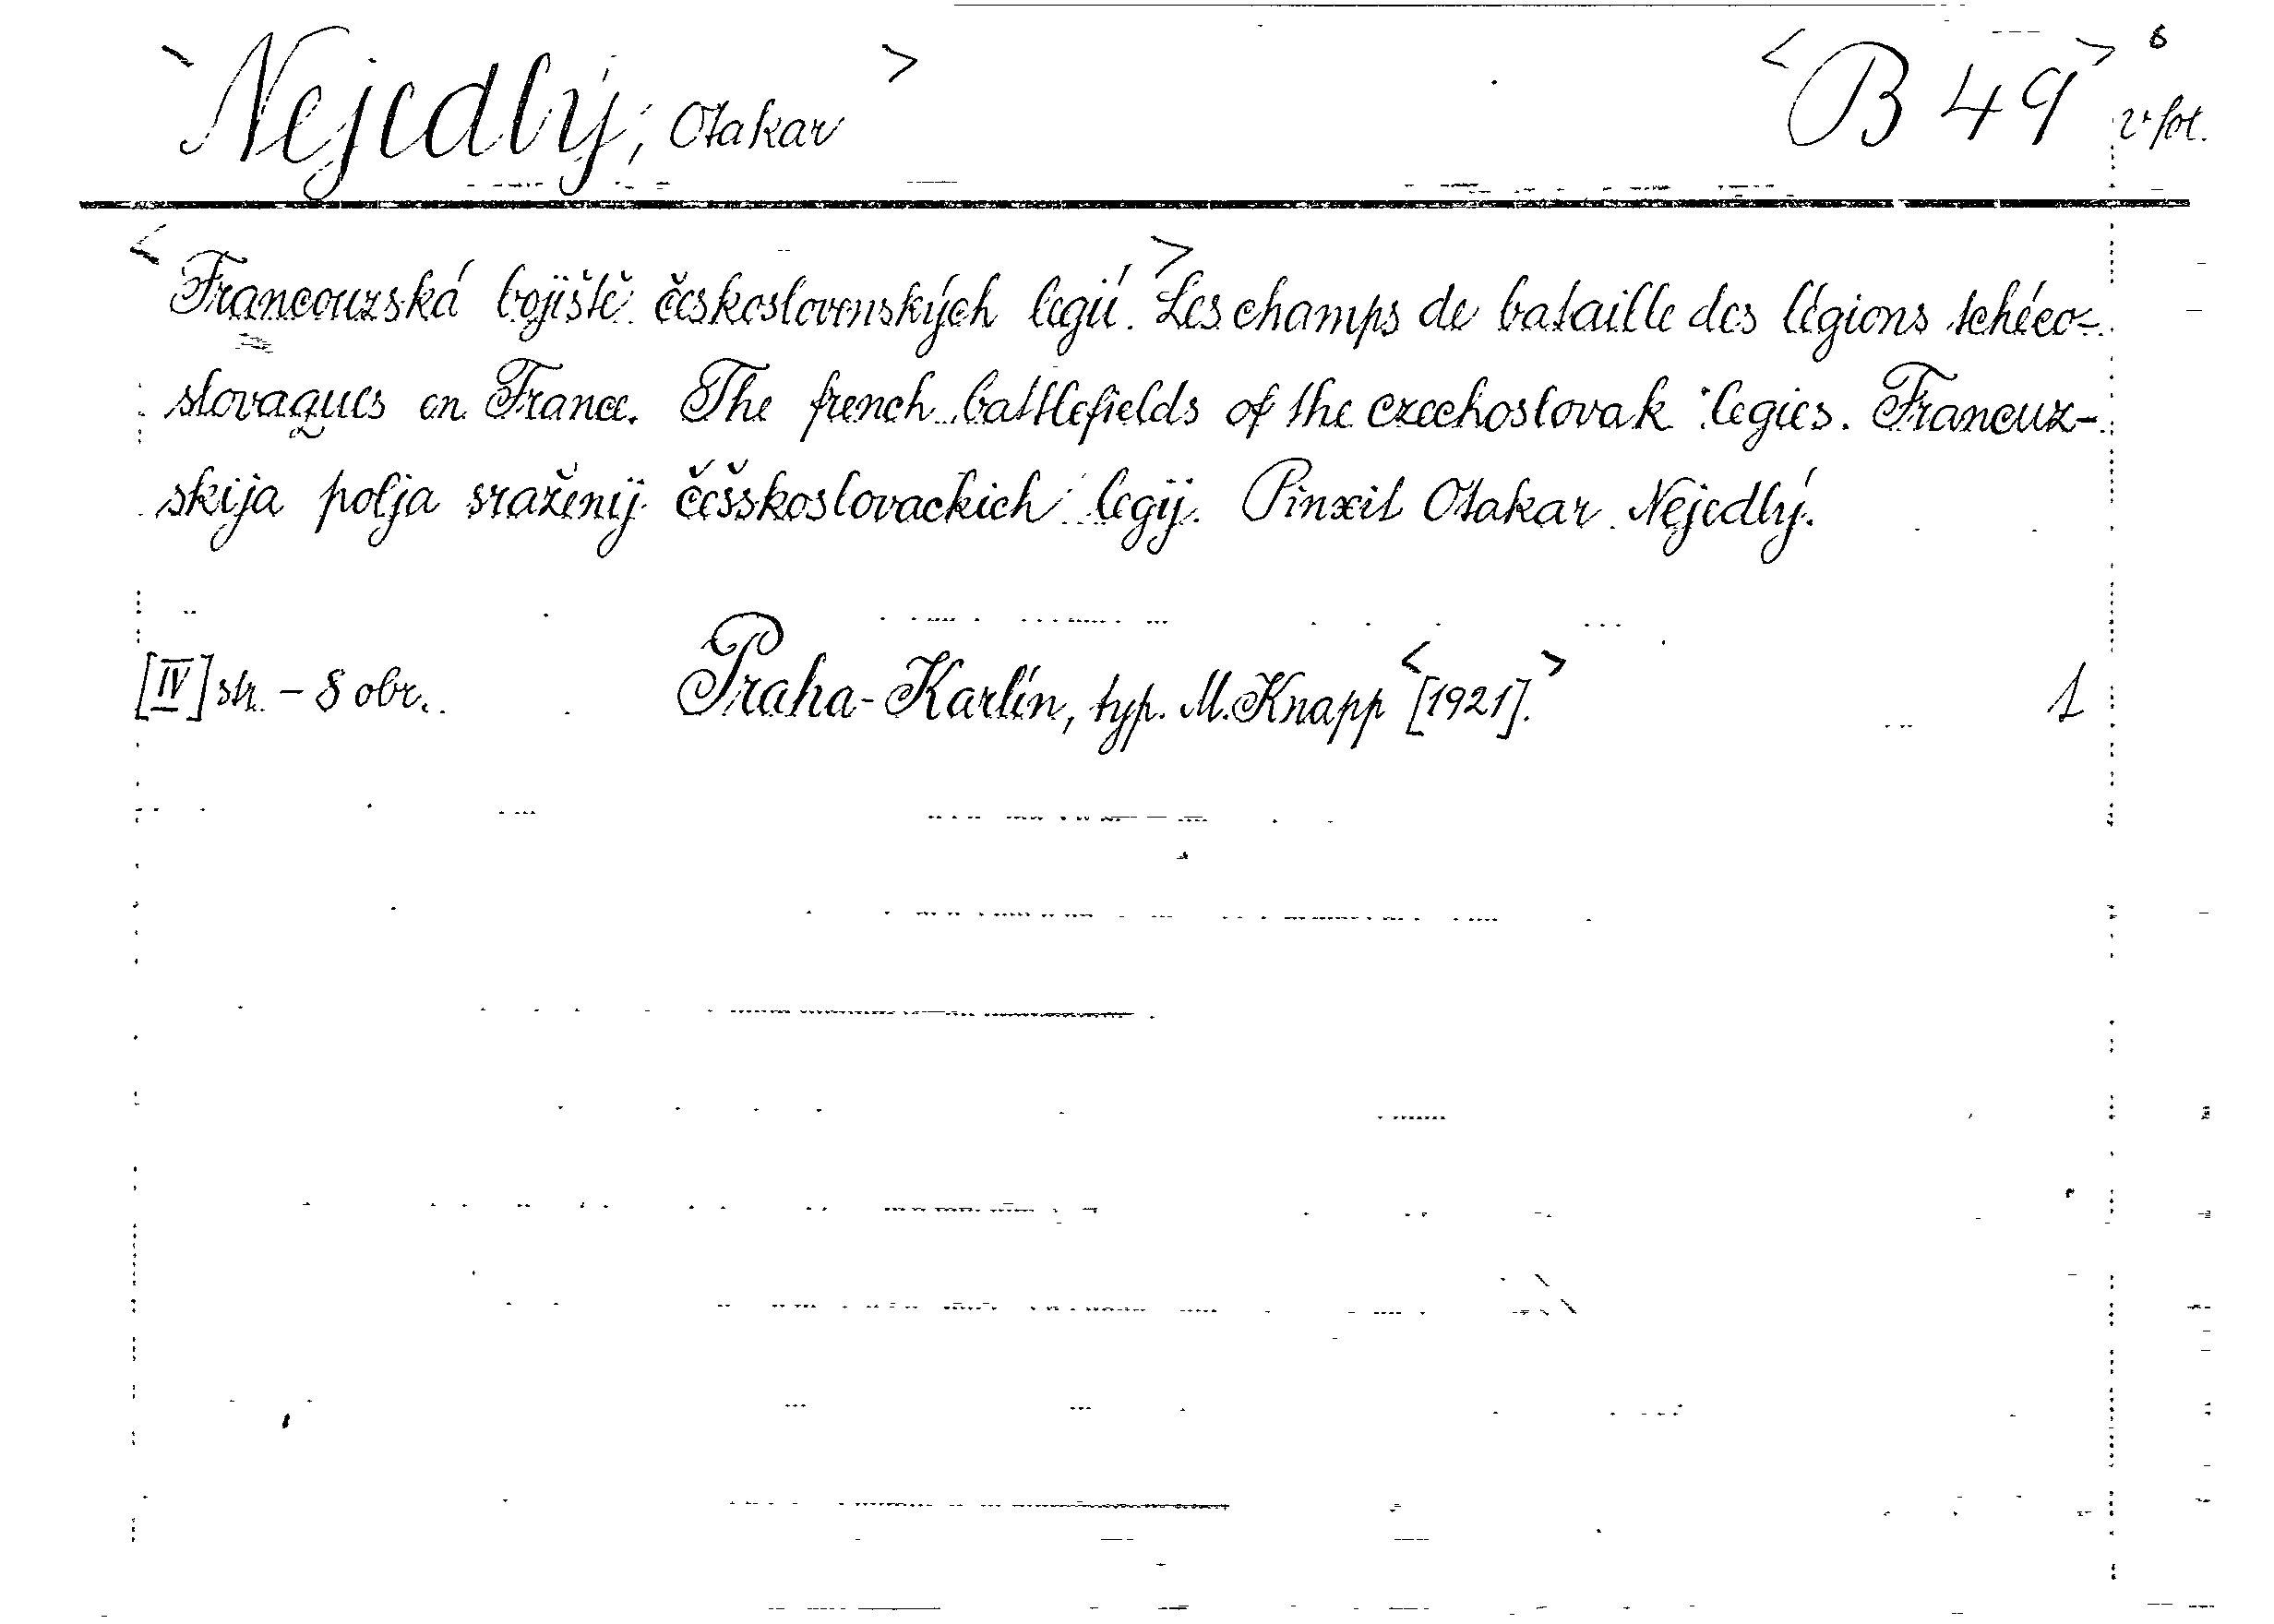 <Nejedlý, Otakar> <B 49> 6
v fol.
<Francouzská bojiště československých legií.> Les champs de bataille des légions tchéco-
slovaques en France. The french battlefields of the czechoslovak legies. Francuz-
skija polja sraženij čéšskoslovackich legij. Pinxit Otakar Nejedlý.
[IV] str. - 8 obr. Praha-Karlín, typ. M. Knapp <[1921].> 1